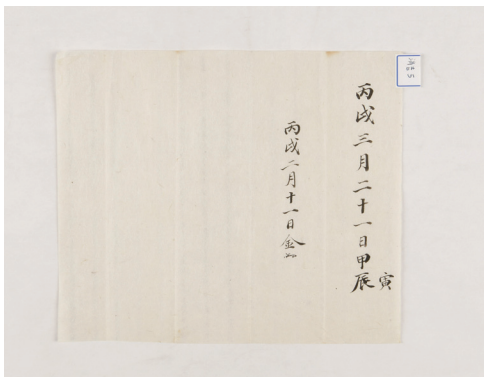 丙戌三月二十一日甲辰寅
丙戌二月十一日金